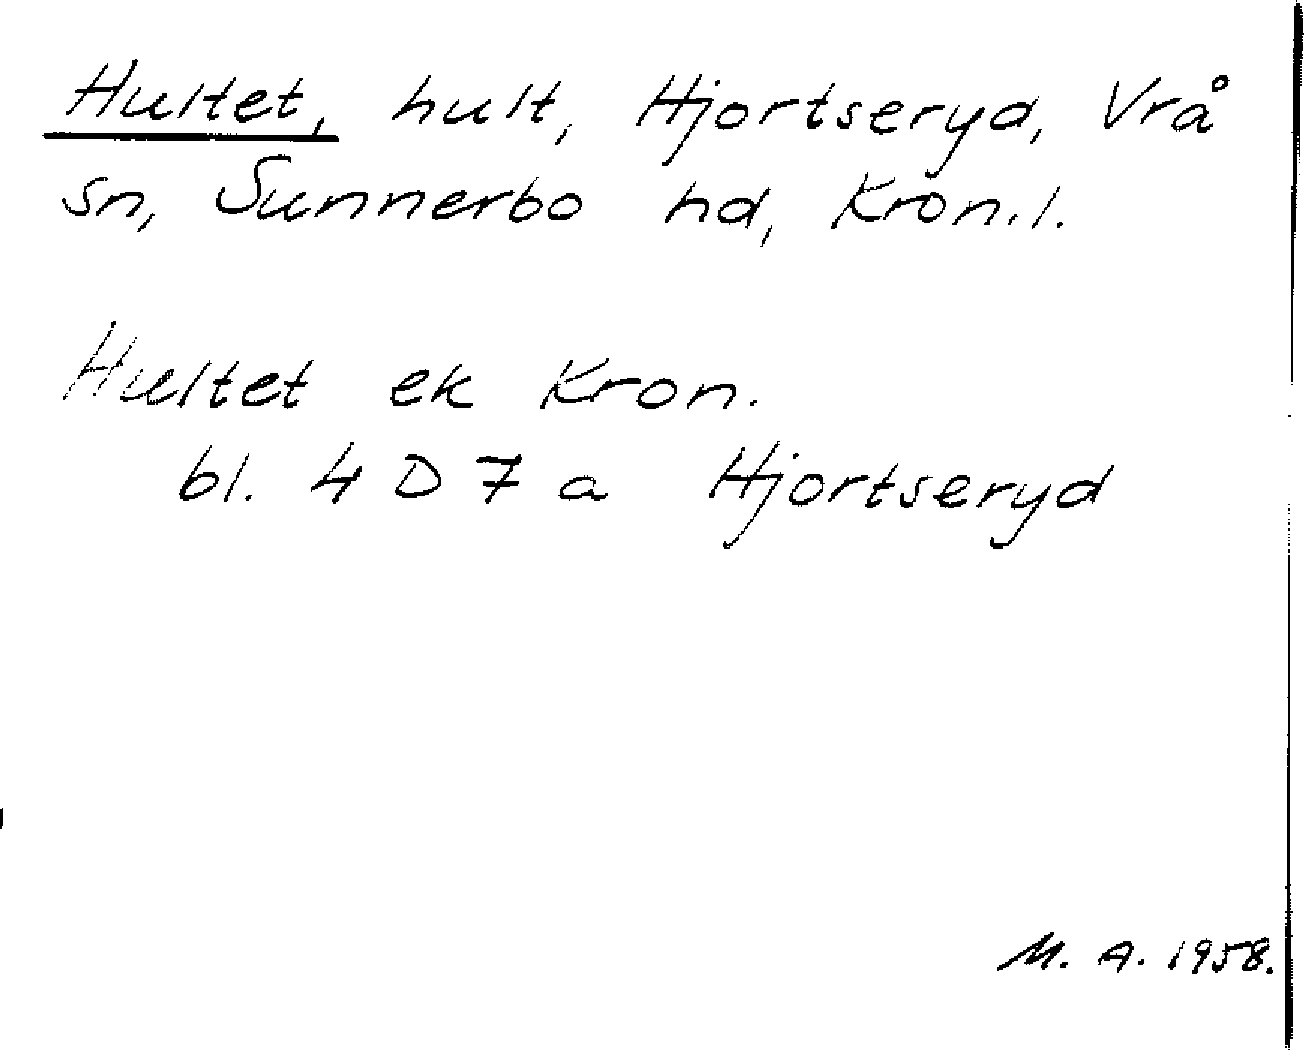 Hultet, hult, Hjortseryd, Vrå
sn, Sunnerbo hd, Kron.l.
Hultet ek Kron.
bl. 4 D 7 a Hjortseryd
M. A. 1958.